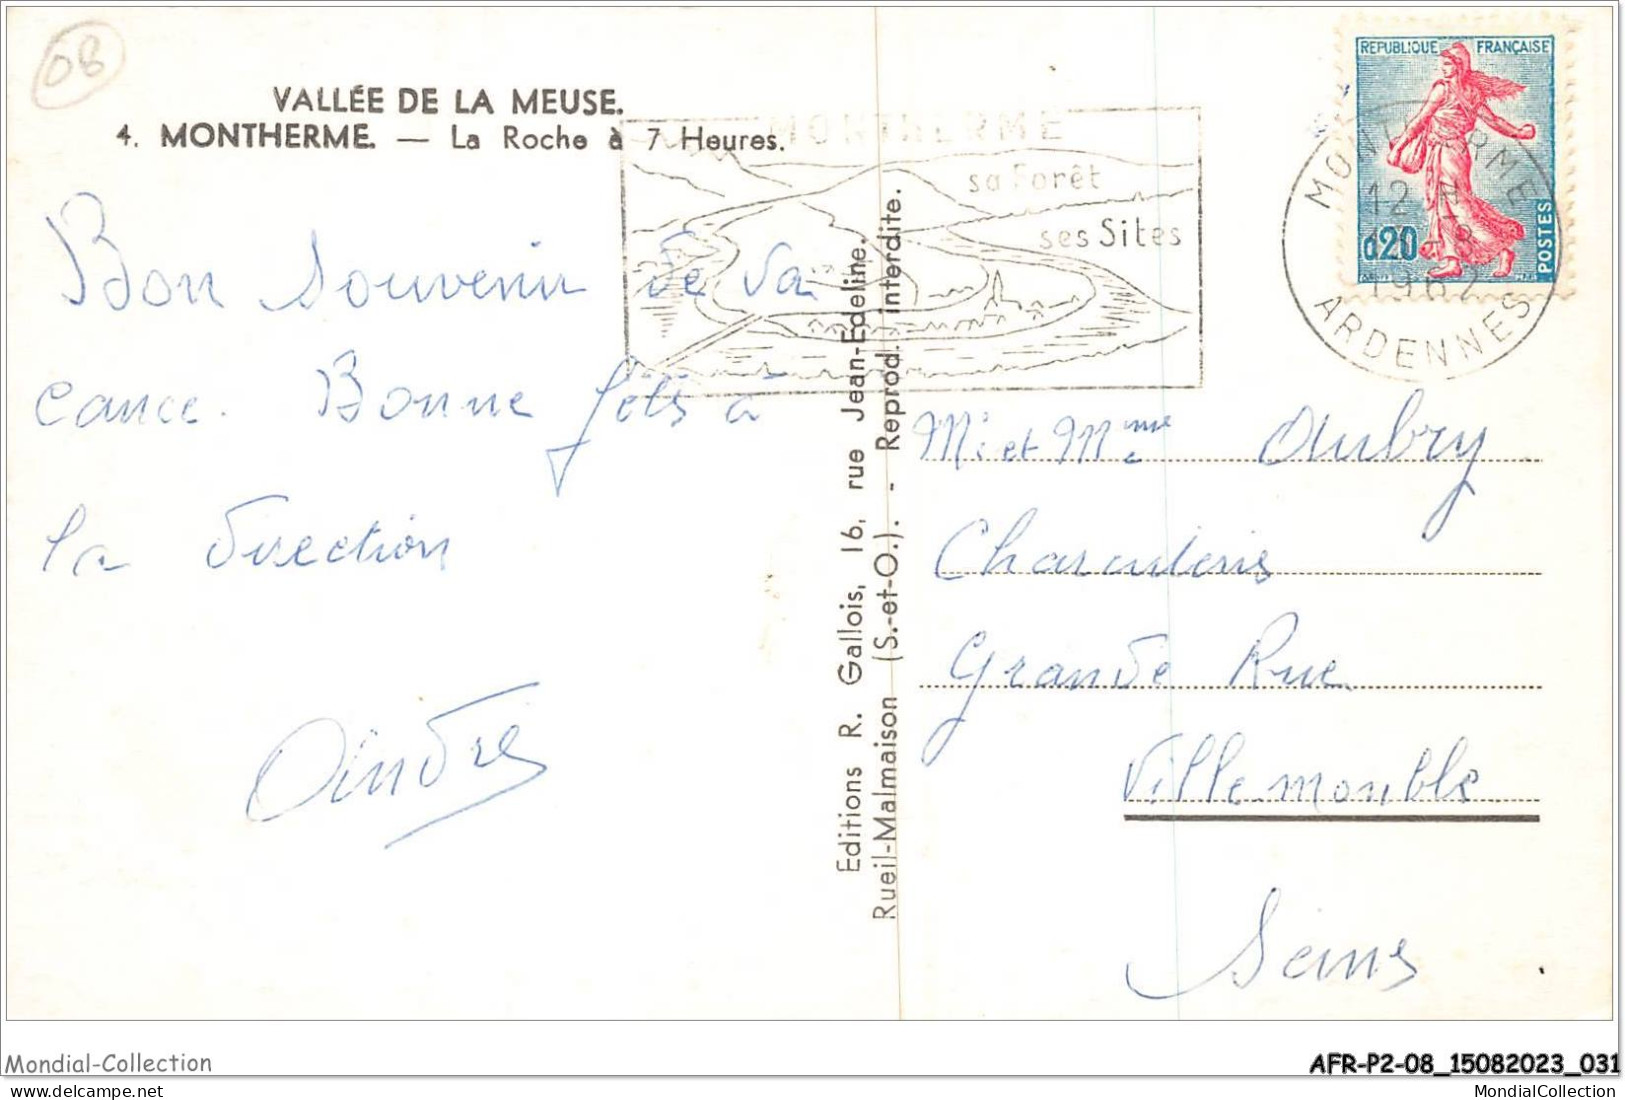 08
VALLÉE DE LA MEUSE.
4. MONTHERME. — La Roche à 7 Heures.
MONTHERME
sa Forêt
ses Sites
REPUBLIQUE FRANÇAISE
0,20
POSTES
MONTHERME
12 H
1962
ARDENNES
Bon souvenir de va
cance. Bonne fête à
la direction
André
Editions R. Gallois, 16, rue Jean-Edeline.
Rueil-Malmaison (S.-et-O.). - Reprod. interdite.
Mr et Mme Aubry
Charcuterie
Grande Rue
Villemomble
Seine
Mondial-Collection
AFR-P2-08_15082023_031
Mondial-Collection
MondialCollection